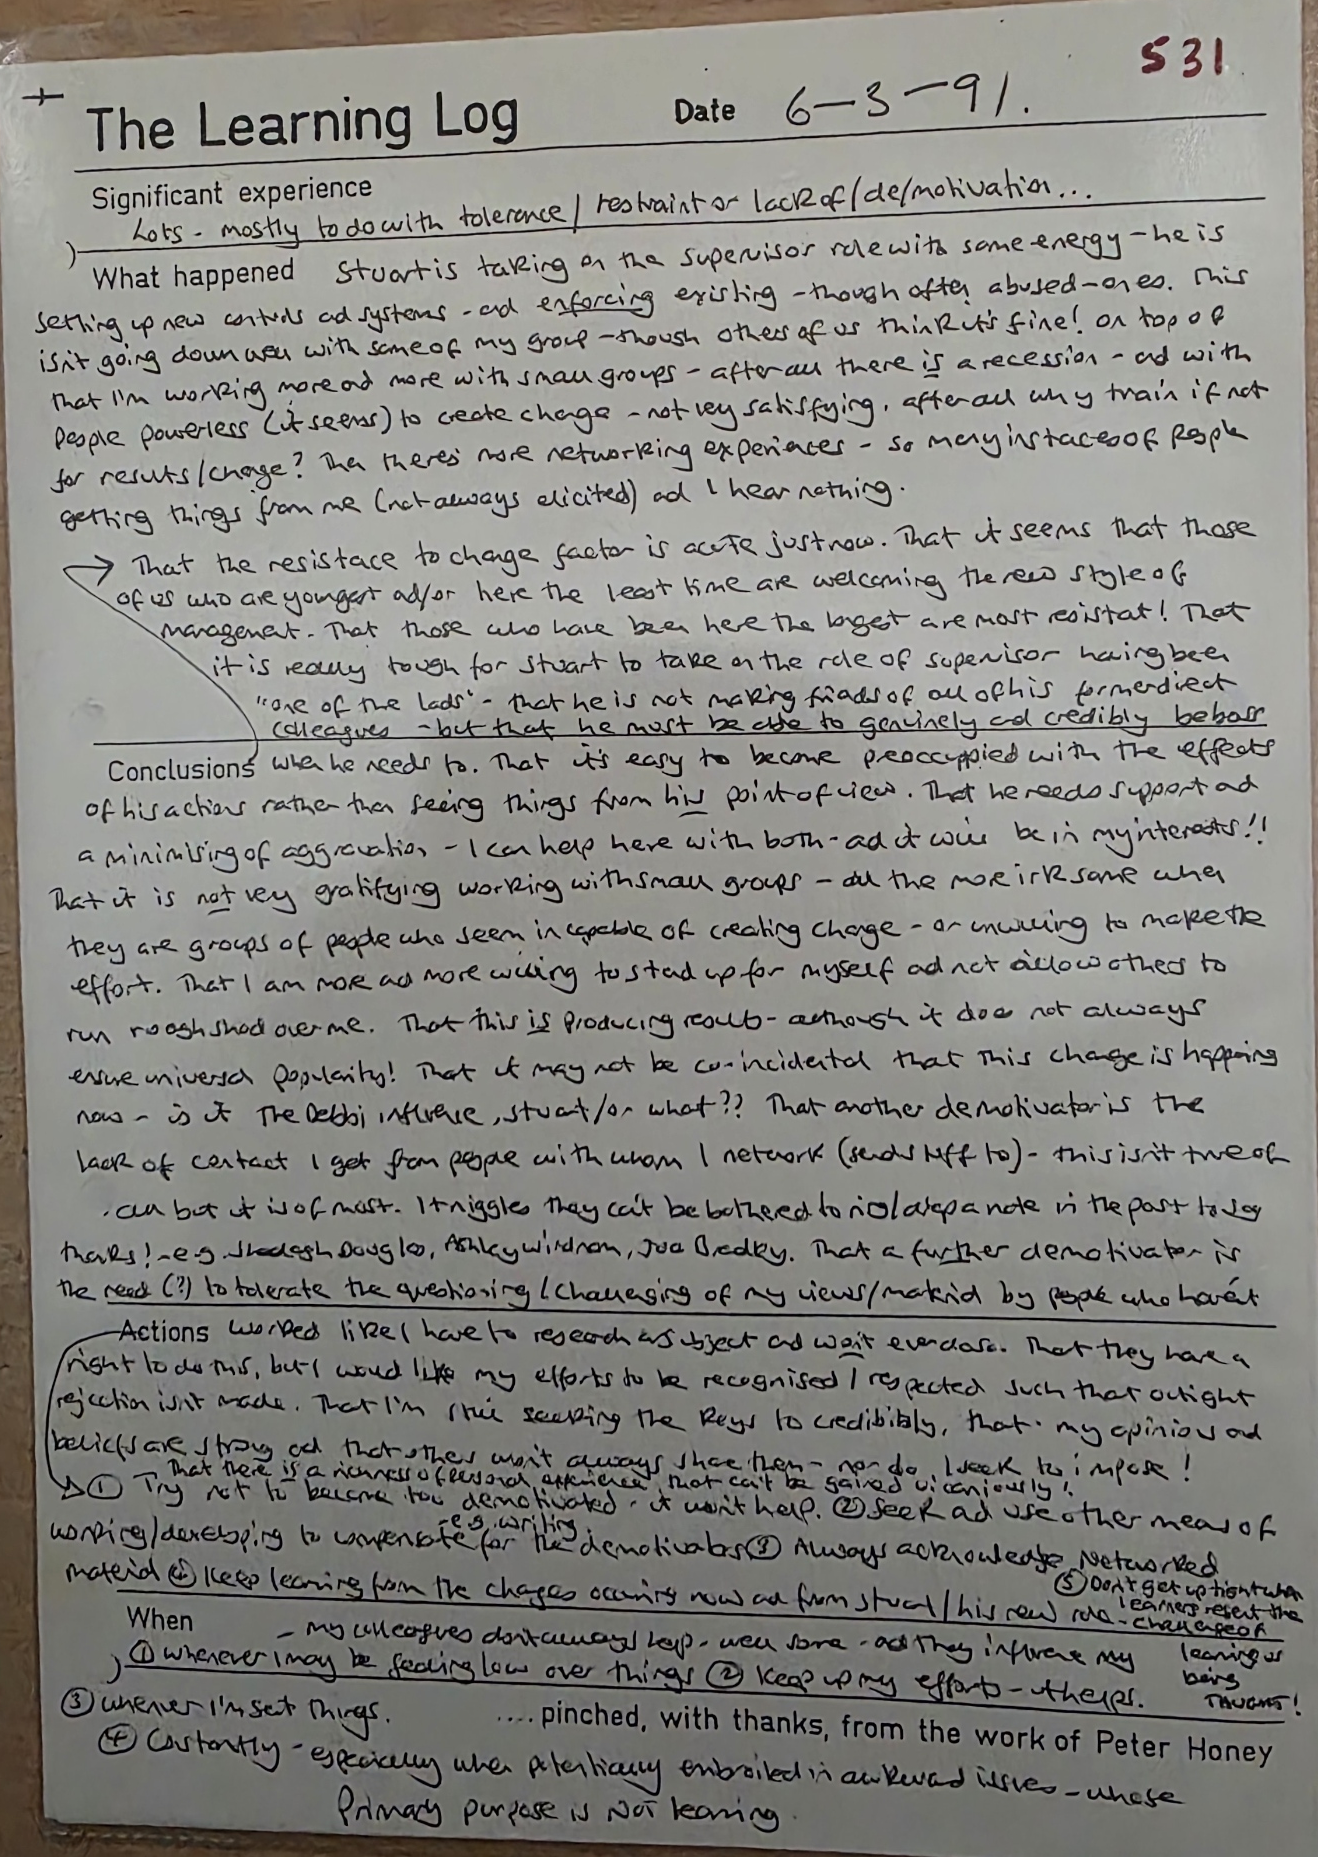 531
The Learning Log Date 6-3-91.
Significant experience
Lots - mostly to do with tolerance / restraint or lack of / (de/motivation...
What happened Stuart is taking on the supervisor role with some energy - he is
setting up new controls and systems - and enforcing existing - though often abused - ones. This
isn't going down well with some of my group - though others of us think it's fine! On top of
that I'm working more and more with small groups - after all there is a recession - and with
people powerless (it seems) to create change - not very satisfying, after all why train if not
for results/change? Then there's more networking experiences - so many instances of people
getting things from me (not always elicited) and I hear nothing.
→ That the resistance to change factor is acute just now. That it seems that those
of us who are youngest and/or here the least time are welcoming the new style of
management. That those who have been here the longest are most resistant! That
it is really tough for Stuart to take on the role of supervisor having been
"one of the lads" - that he is not making friends of all of his former direct
colleagues - but that he must be able to genuinely and credibly be boss
Conclusions when he needs to. That it's easy to become preoccupied with the effects
of his actions rather than seeing things from his point of view. That he needs support and
a minimising of aggravation - I can help here with both - and it will be in my interests!!
That it is not very gratifying working with small groups - all the more irksome when
they are groups of people who seem incapable of creating change - or unwilling to make the
effort. That I am more and more willing to stand up for myself and not allow others to
run roughshod over me. That this is producing results - although it does not always
ensure universal popularity! That it may not be co-incidental that this change is happening
now - is it The Debbi influence, Stuart/or what?? That another demotivator is the
lack of contact I get from people with whom I network (send stuff to) - this isn't true of
all but it is of most. It niggles they can't be bothered to ring/drop a note in the post to say
thanks! - e.g. Douglas, Ashley . That a further demotivator is
the need (?) to tolerate the questioning/challenging of my views/material by people who haven't
Actions worked like I have to research a subject and won't ever do so. That they have a
right to do this, but I would like my efforts to be recognised/respected such that outright
rejection isn't made. That I'm still seeking the keys to credibility, that my opinions and
beliefs are strong and that others won't always share them - nor do I seek to impose!
That there is a richness of personal experience that can't be gained vicariously!
① Try not to become too demotivated - it won't help. ② Seek and use other means of
working/developing to compensate for the demotivators - e.g. writing. ③ Always acknowledge Networked
material ④ Keep learning from the changes occurring now and from Stuart/his new role
⑤ Don't get uptight when
learners resent the
challenge of
learning vs
being
TAUGHT!
When - my colleagues don't always help - well some - and they influence my
① whenever I may be feeling low over things ② Keep up my efforts - it helps.
③ whenever I'm sent things.
.... pinched, with thanks, from the work of Peter Honey
④ Constantly - especially when potentially embroiled in awkward issues - whose
Primary purpose is NOT learning.